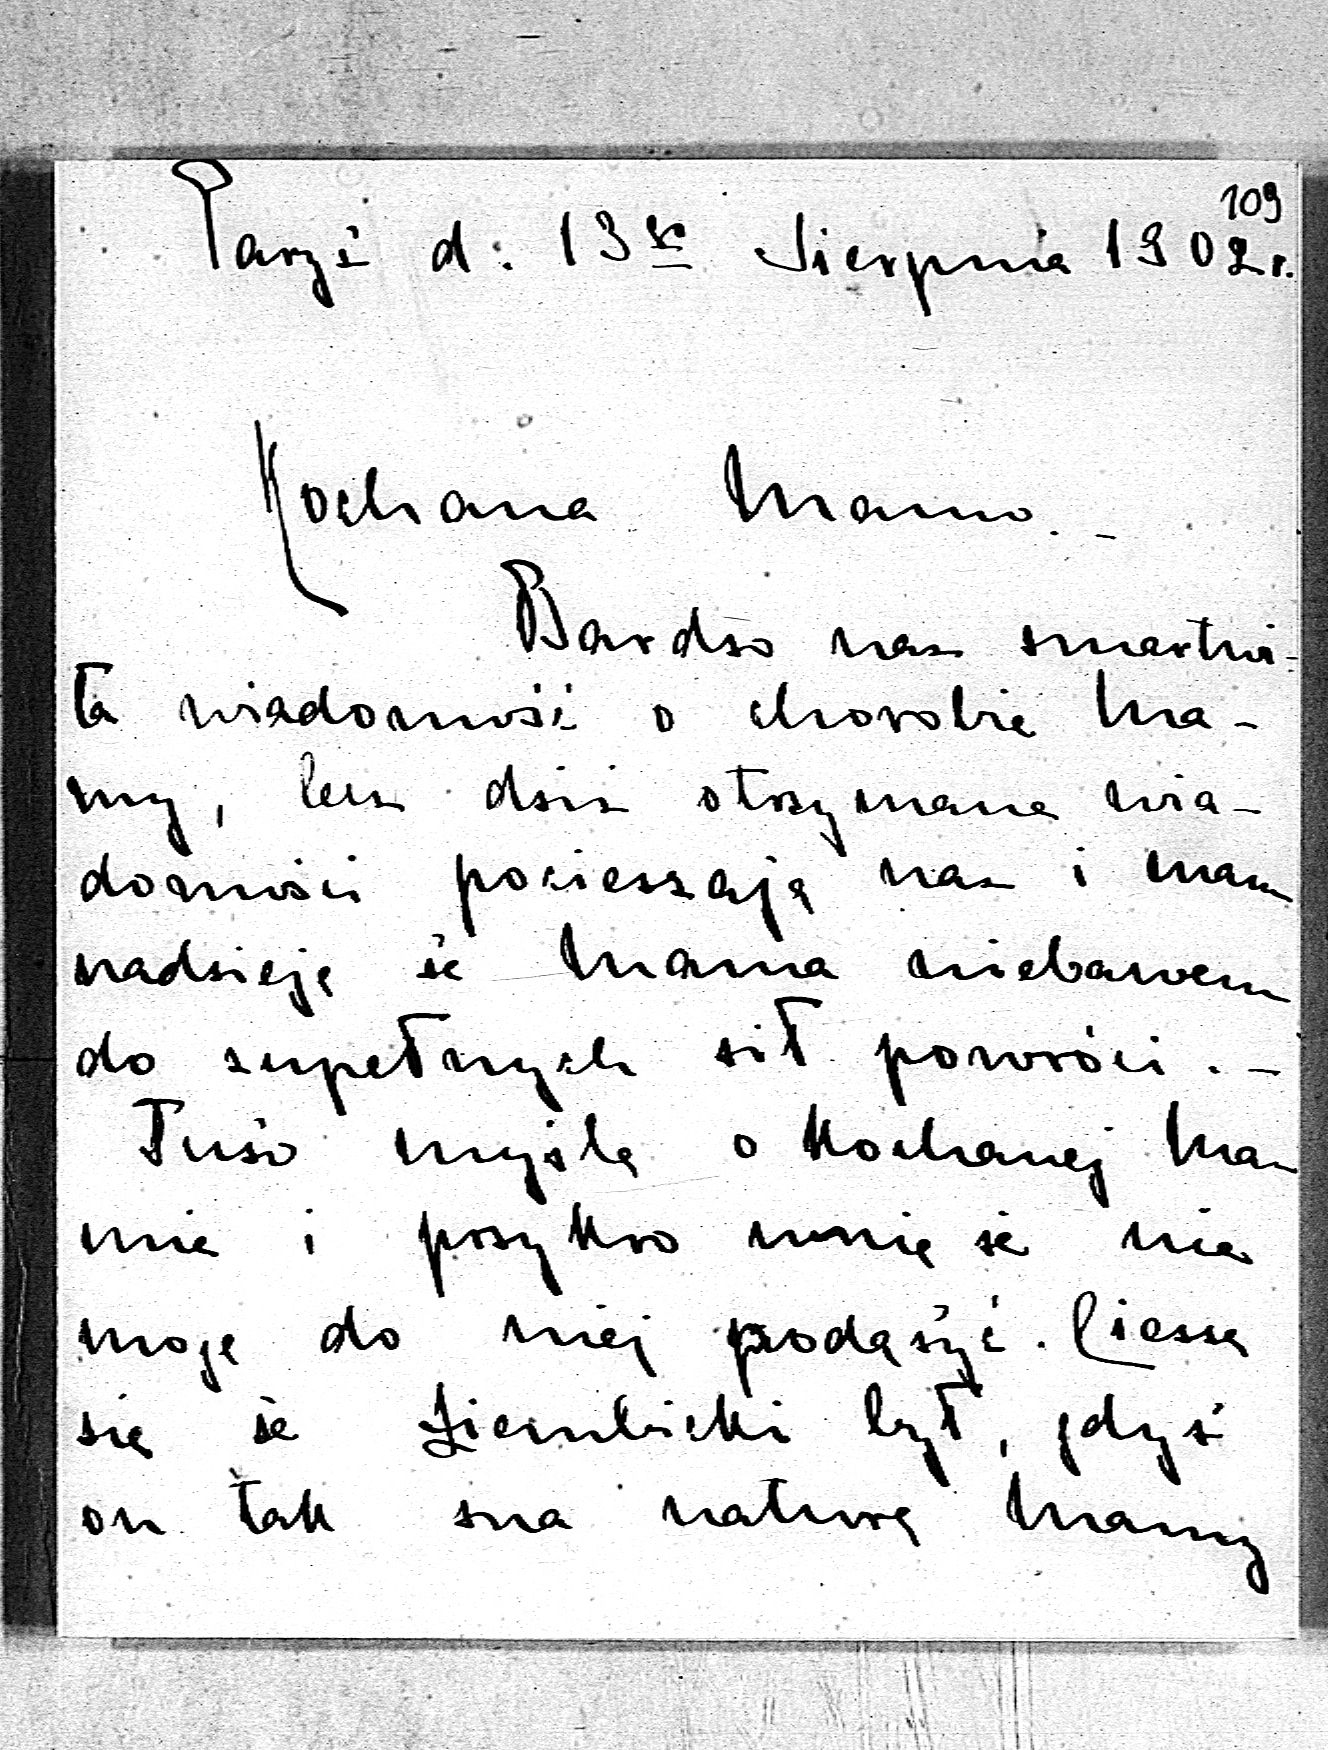 109
Paryż d: 13go Sierpnia 1902 r.
Kochana Mamo. –
Bardzo nas zmartwi-
ła wiadomość o chorobie Ma-
my, lecz dziś otrzymane wia-
domości pocieszają nas i mam
nadzieję że Mama niebawem
do zupełnych sił powróci. –
Dużo myślę o Kochanej Ma-
mie i przykro mnie że nie
mogę do niej podążyć. Cieszę
się że Ziembicki był, gdyż
on tak zna naturę Mamy